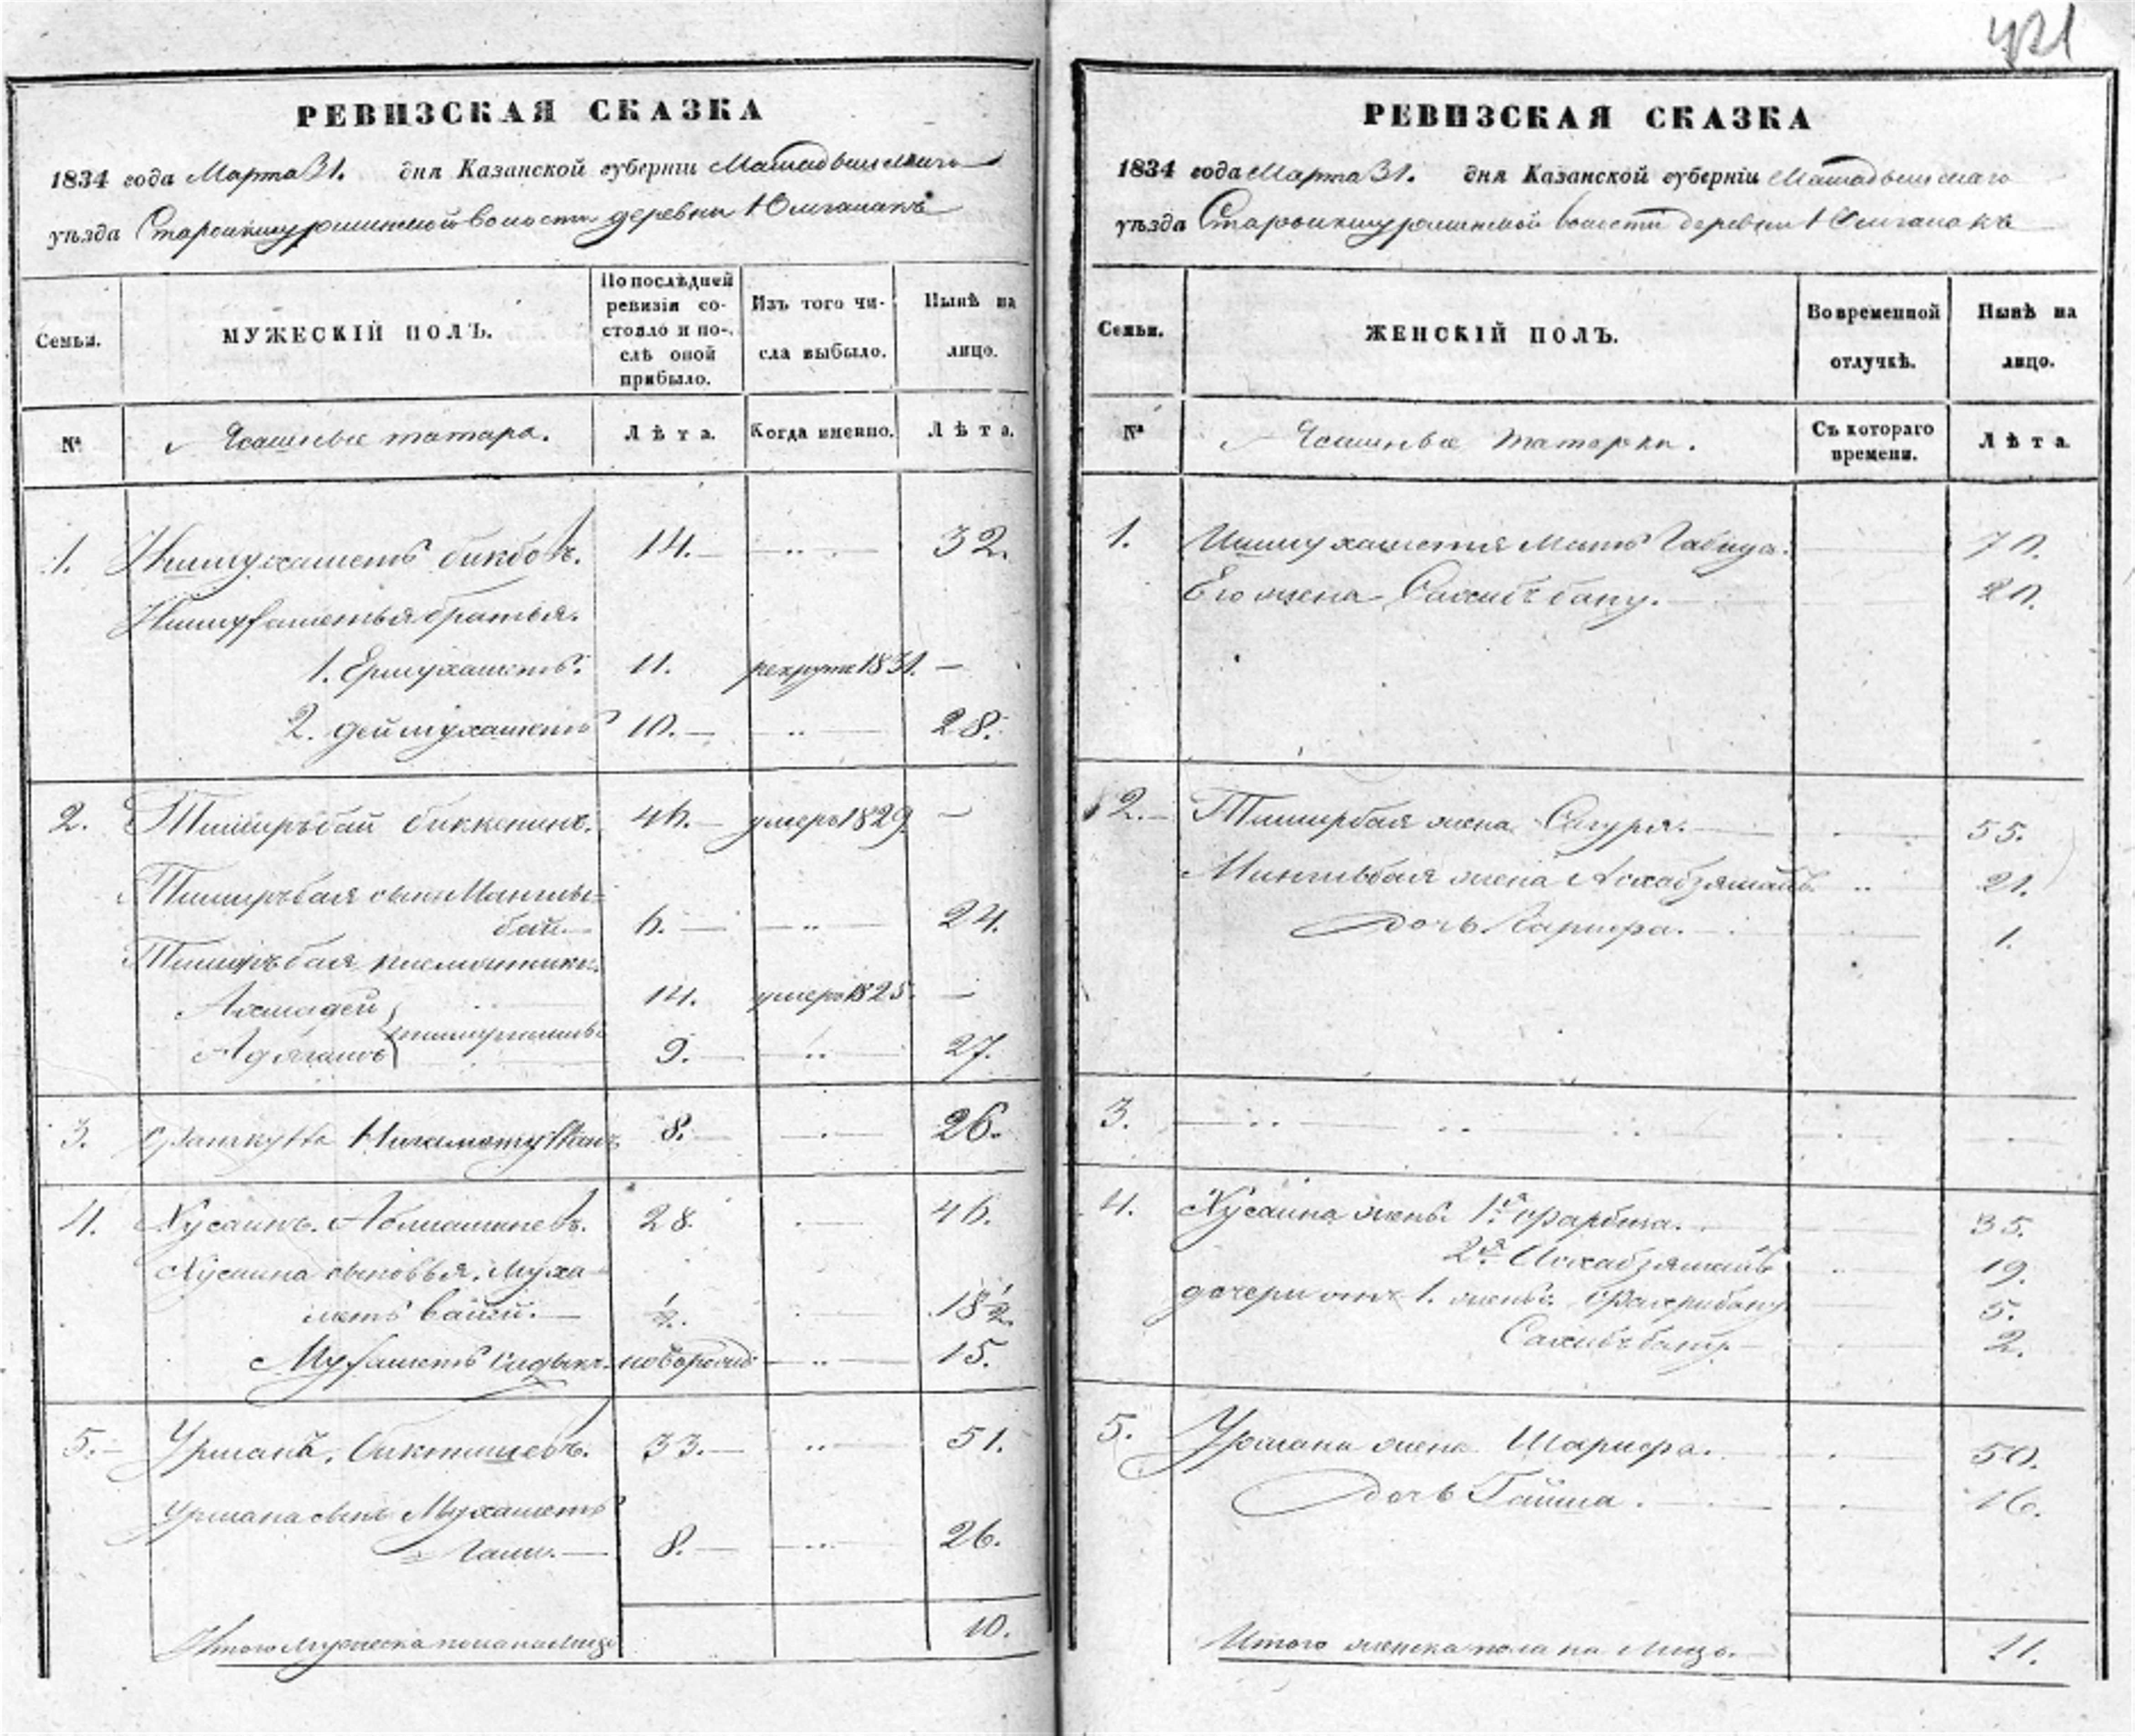 421
РЕВИЗСКАЯ СКАЗКА
1834 года Марта 31. дня Казанской губерніи Мамадышскаго
уѣзда волости деревни Юлгапакъ
Семьи.
МУЖЕСКІЙ ПОЛЪ.
По послѣдней ревизіи состояло и послѣ оной прибыло.
Изъ того числа выбыло.
Нынѣ на лицо.
№ Ясашные татара. Лѣта. Когда именно. Лѣта.
1. Ишмухаметъ бикбовъ. 14. 32.
Ишмухаметья братья.
1. Ермухаметъ. 11. рекрутъ 1831.
2. деймухаметъ 10. 28.
2. Тимирьбай биккенинъ. 46. умеръ 1829
Тимирьбая сынъ Манглы-
бай. 6. 24.
Тимирьбая племянники.
Ахмадей 14. умеръ 1825.
9. 27.
3. 8. 26.
4. Хусаинъ. 28. 46.
Хусаина сыновья. Муха-
метъ 1/2. 18 1/2.
Мухаметъ сидыкъ. новорожд 15.
5. Урманъ. Бикташевъ. 33. 51.
Урмана сынъ Мухаметъ
Гали. 8. 26.
Итого мужеска пола на лицо 10.
РЕВИЗСКАЯ СКАЗКА
1834 года Марта 31. дня Казанской губерніи Мамадышскаго
уѣзда волости деревни Юлгапакъ
Семьи.
ЖЕНСКІЙ ПОЛЪ.
Во временной отлучкѣ.
Нынѣ на лицо.
№ Ясашные татарки. Съ котораго времени. Лѣта.
1. Ишмухаметя мать Габида. 70.
Его жена Сахибъбану. 20.
2. Тимирбая жена Сагуря. 55.
жена 21.
дочь 1.
3.
4. Хусаина жены 1я 35.
2я 19.
дочери отъ 1. жены. Фахрибану 5.
Сахибъбану. 2.
5. Урмана жена Шарифа. 50.
дочь Гайша. 16.
Итого женска пола на лицо. 11.